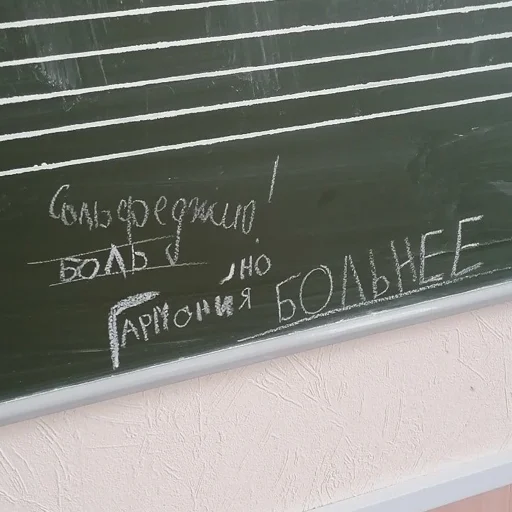 Сольфеджио!
БОЛЬ
, НО
ГАРМОНИЯ БОЛЬНЕЕ